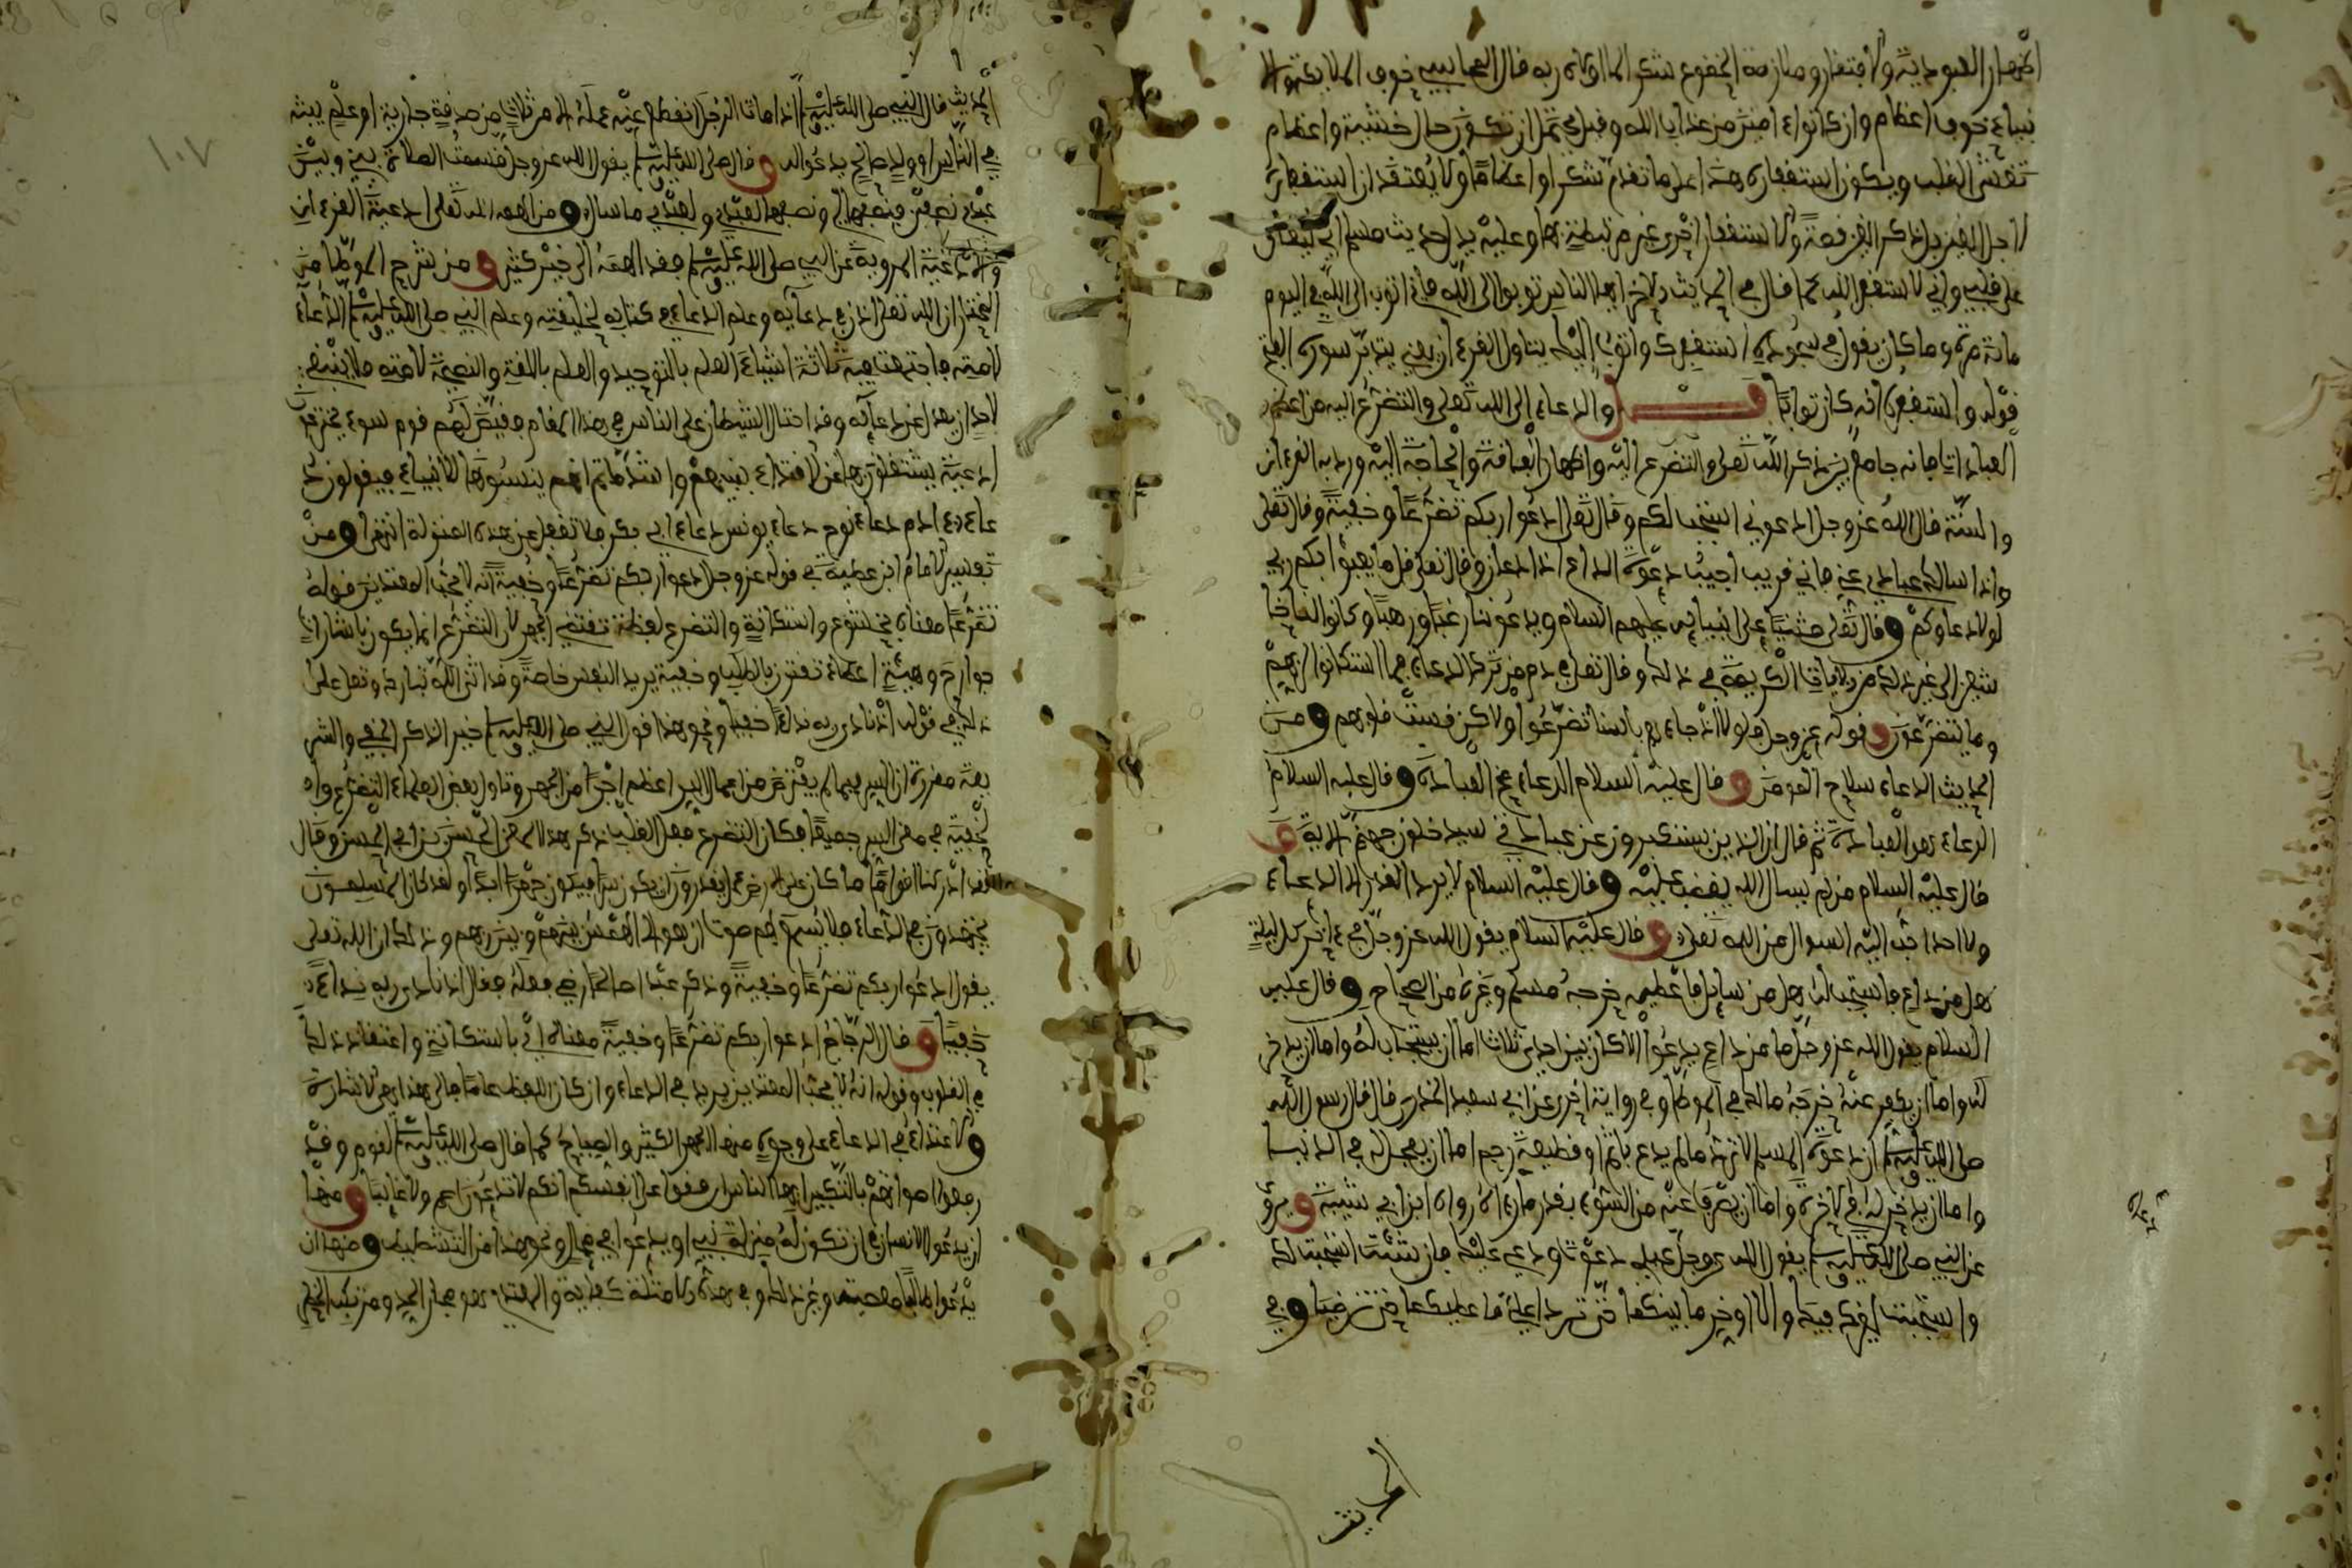 اظهار العبودية والافتقار وملازمة الخضوع شكرا لما اولاه ربه قال المحاسبي خوف الملائكة والا
نبياء خوف اعظام وان كانوا ءامنين من عذاب الله وقيل يحتمل ان تكون حال خشية واعظام
تغشى القلب ويكون استغفاره هنا على ما تقدم شكرا واعظاما ولا يعتقد ان استغفاره
لاجل الغين بل ذكر الغين قصة والاستغفار اخرى غير مرتبطة بها وعليه يدل حديث مسلم انه ليغان
على قلبي واني لاستغفر الله كما قال في الحديث الاخر ايها الناس توبوا الى الله فاني اتوب الى الله في اليوم
مائة مرة وما كان يقول في سجوده استغفرك واتوب اليك يتاول القرءان يعني يتدبر سورة الفتح
قوله واستغفره انه كان توابا فصل والدعاء الى الله تعلى والتضرع اليه من اعظم
العبادات فانه جامع بين ذكر الله تعلى والتضرع اليه واظهار الفاقة والحاجة اليه ورد به القرءان
والسنة قال الله عز وجل ادعوني استجب لكم وقال تعلى ادعوا ربكم تضرعا وخفية وقال تعلى
واذا سالك عبادي عني فاني قريب اجيب دعوة الداع اذا دعان وقال تعلى قل ما يعبؤا بكم ربي
لولا دعاوكم وقال تعلى مثنيا على انبيائه عليهم السلام ويدعوننا رغبا ورهبا وكانوا لنا خا
شعين الى غير ذلك من الايات الكريمة في ذلك وقال تعلى في ذم من ترك الدعاء فما استكانوا لربهم
وما يتضرعون وقوله عز وجل فلولا اذ جاءهم باسنا تضرعوا ولاكن قست قلوبهم ومن
الحديث الدعاء سلاح المومن وقال عليه السلام الدعاء مخ العبادة وقال عليه السلام
الدعاء هو العبادة ثم قال ان الذين يستكبرون عن عبادتي سيدخلون جهنم الاية و
قال عليه السلام من لم يسال الله يغضب عليه وقال عليه السلام لا يرد القدر الا الدعاء
ولا احد احب اليه السوال من الله تعلى وقال عليه السلام يقول الله عز وجل في ءاخر كل ليلة
هل من داع فاستجيب له هل من سائل فاعطيه خرجه مسلم وغيره من الصحاح وقال عليه
السلام يقول الله عز وجل ما من داع يدعوا الا كان بين احدى ثلاث اما ان يستجاب له واما ان يدخر
له واما ان يكفر عنه خرجه مالك في الموطا وفي رواية اخرى عن ابي سعيد الخدري قال قال رسول الله
صلى الله عليه وسلم ان دعوة المسلم لا ترد ما لم يدع باثم او قطيعة رحم اما ان يعجل له في الدنيا
واما ان يدخر له في الاخرة واما ان يصرف عنه من السوء بقدر ما دعاه رواه ابن ابي شيبة وروي
عن النبي صلى الله عليه وسلم يقول الله عز وجل عبدي دعوتنا ودعي عليك فان شئت استجبت لك
واستجبت لغيرك فيك والا اوخر ما بينكما
وفي
الحديث
الحديث قال النبي صلى الله عليه وسلم اذا مات الرجل انقطع عنه عمله الا من ثلاث من صدقة جارية او علم يبثه
في الناس او ولد صالح يدعو له وقال صلى الله عليه وسلم يقول الله عز وجل قسمت الصلاة بيني وبين
عبدي نصفين فنصفها لي ونصفها لعبدي ولعبدي ما سال ومن الهمه الله تعلى ادعية القرءان
والادعية المروية عن النبي صلى الله عليه وسلم فقد الهمه الى خير كثير ومن شرح الموطا من
المختار ان الله تعلى اذن في دعائه وعلم الدعاء في كتابه لخليقته وعلم النبي صلى الله عليه وسلم الدعاء
لامته فاجتمعت فيه ثلاثة اشياء العلم بالتوحيد والعلم باللغة والنصيحة لامته فلا ينبغي
لاحد ان يعدل عن دعائه وقد احتال الشيطان على الناس في هذا المقام فقيض لهم قوم سوء يخترعون
ادعية يشتغلون بها عن الاقتداء بنبيهم واشد ما ثم انهم ينسبونها للانبياء فيقولون د
عاء ءادم دعاء نوح دعاء يونس دعاء ابي بكر فلا تغفل عن هذه المنزلة انتهى ومن
تفسير الامام ابن عطية في قوله عز وجل ادعوا ربكم تضرعا وخفية انه لا يحب المعتدين قوله
تضرعا معناه بخشوع واستكانة والتضرع لفظة تقتضي الجهر لان التضرع انما يكون باشارات
جوارح وهيئة اعضاء تقترن بالطلب وخفية يريد النفس خاصة وقد اثنى الله تبارك وتعلى على
ذلك في قوله اذ نادى ربه نداء خفيا ونحو هذا قول النبي صلى الله عليه وسلم خير الذكر الخفي والشر
يعة مقررة ان السر فيما لم يفترض من اعمال البر اعظم اجرا من الجهر وتاول بعض العلماء التضرع وا
لخفية في معنى السر جميعا فكان التضرع فعل القلب ذكر هذا المعنى الحسن بن ابي الحسن وقال
لقد ادركنا اقواما ما كان على الارض عمل يقدرون ان يكون سرا فيكون جهرا ابدا ولقد كان المسلمون
يجتهدون في الدعاء فلا يسمع لهم صوت ان هو الا الهمس بينهم وبين ربهم وذلك ان الله تعلى
يقول ادعوا ربكم تضرعا وخفية وذكر عبدا صالحا رضي فعله فقال اذ نادى ربه نداء
خفيا وقال الزجاج ادعوا ربكم تضرعا وخفية معناه اي باستكانة واعتقاد ذلك
في القلوب وقوله انه لا يحب المعتدين يريد في الدعاء وان كان اللفظ عاما فالى هذا هي الاشارة
والاعتداء في الدعاء على وجوه منها الجهر الكثير والصياح كما قال صلى الله عليه وسلم لقوم وقد
رفعوا اصواتهم بالتكبير ايها الناس اربعوا على انفسكم انكم لا تدعون اصم ولا غائبا ومنها
ان يدعو الانسان في ان تكون له منزلة نبي او يدعوا في محال ونحو هذا من التشطط ومنها ان
يدعوا طالبا معصية وغير ذلك وفي هذه الامثلة كفاية والمعتدي هو مجاز الحد ومرتكب الحظر
١٠٧